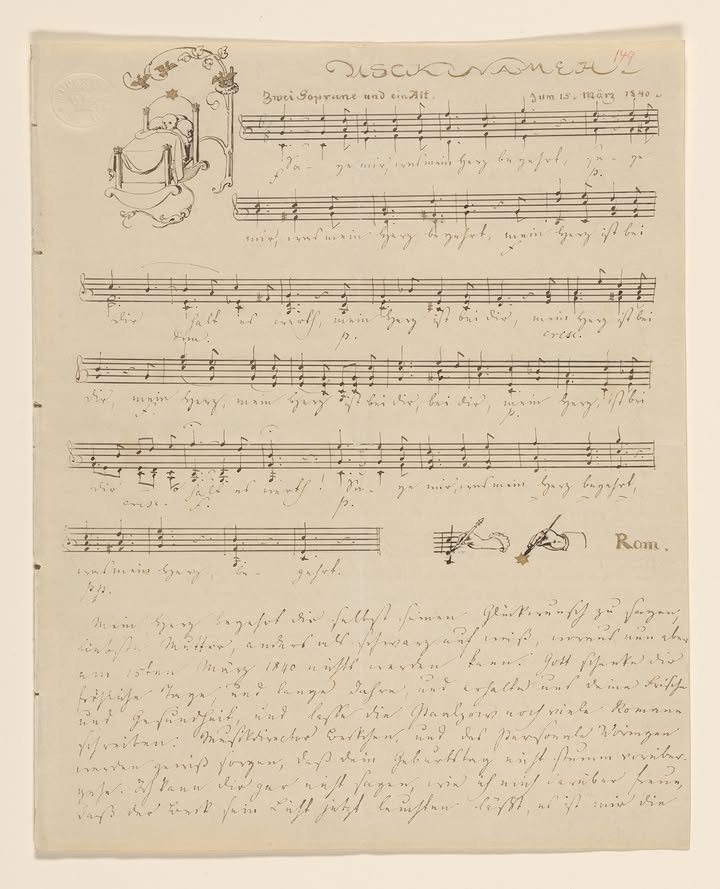 149
USCK NAMEH
Zwei Soprane und ein Alt. Zum 15. März 1840.
Sa- ge mir, was mein Herz begehrt, sa- ge
p.
mir, was mein Herz begehrt, mein Herz ist bei
dir halt es werth, mein Herz ist bei dir, mein Herz ist bei
dim. p. cresc.
dir, mein Herz, mein Herz ist bei dir, bei dir, mein Herz, ist bei
p.
dir halt es werth! Sa- ge mir, was mein Herz begehrt,
cresc. f. p.
was mein Herz, be- gehrt.
pp.
Rom.
Mein Herz begehrt dir selbst seinen Glückwunsch zu sagen,
liebste Mutter, anders als schwarz auf weiß, woraus nun aber
am 15ten März 1840 nichts werden kann. Gott schenke dir
fröhliche Tage, und lange Jahre, und erhalte uns deine Frische
und Gesundheit, und lasse die Paalzow noch viele Romane
schreiben. Musikdirector und das Personale
werden gewiß sorgen, daß dein Geburtstag nicht stumm vorüber-
gehe. Ich kann dir gar nicht sagen, wie ich mich darüber freue,
daß der sein Licht jetzt leuchten läßt, es ist mir die